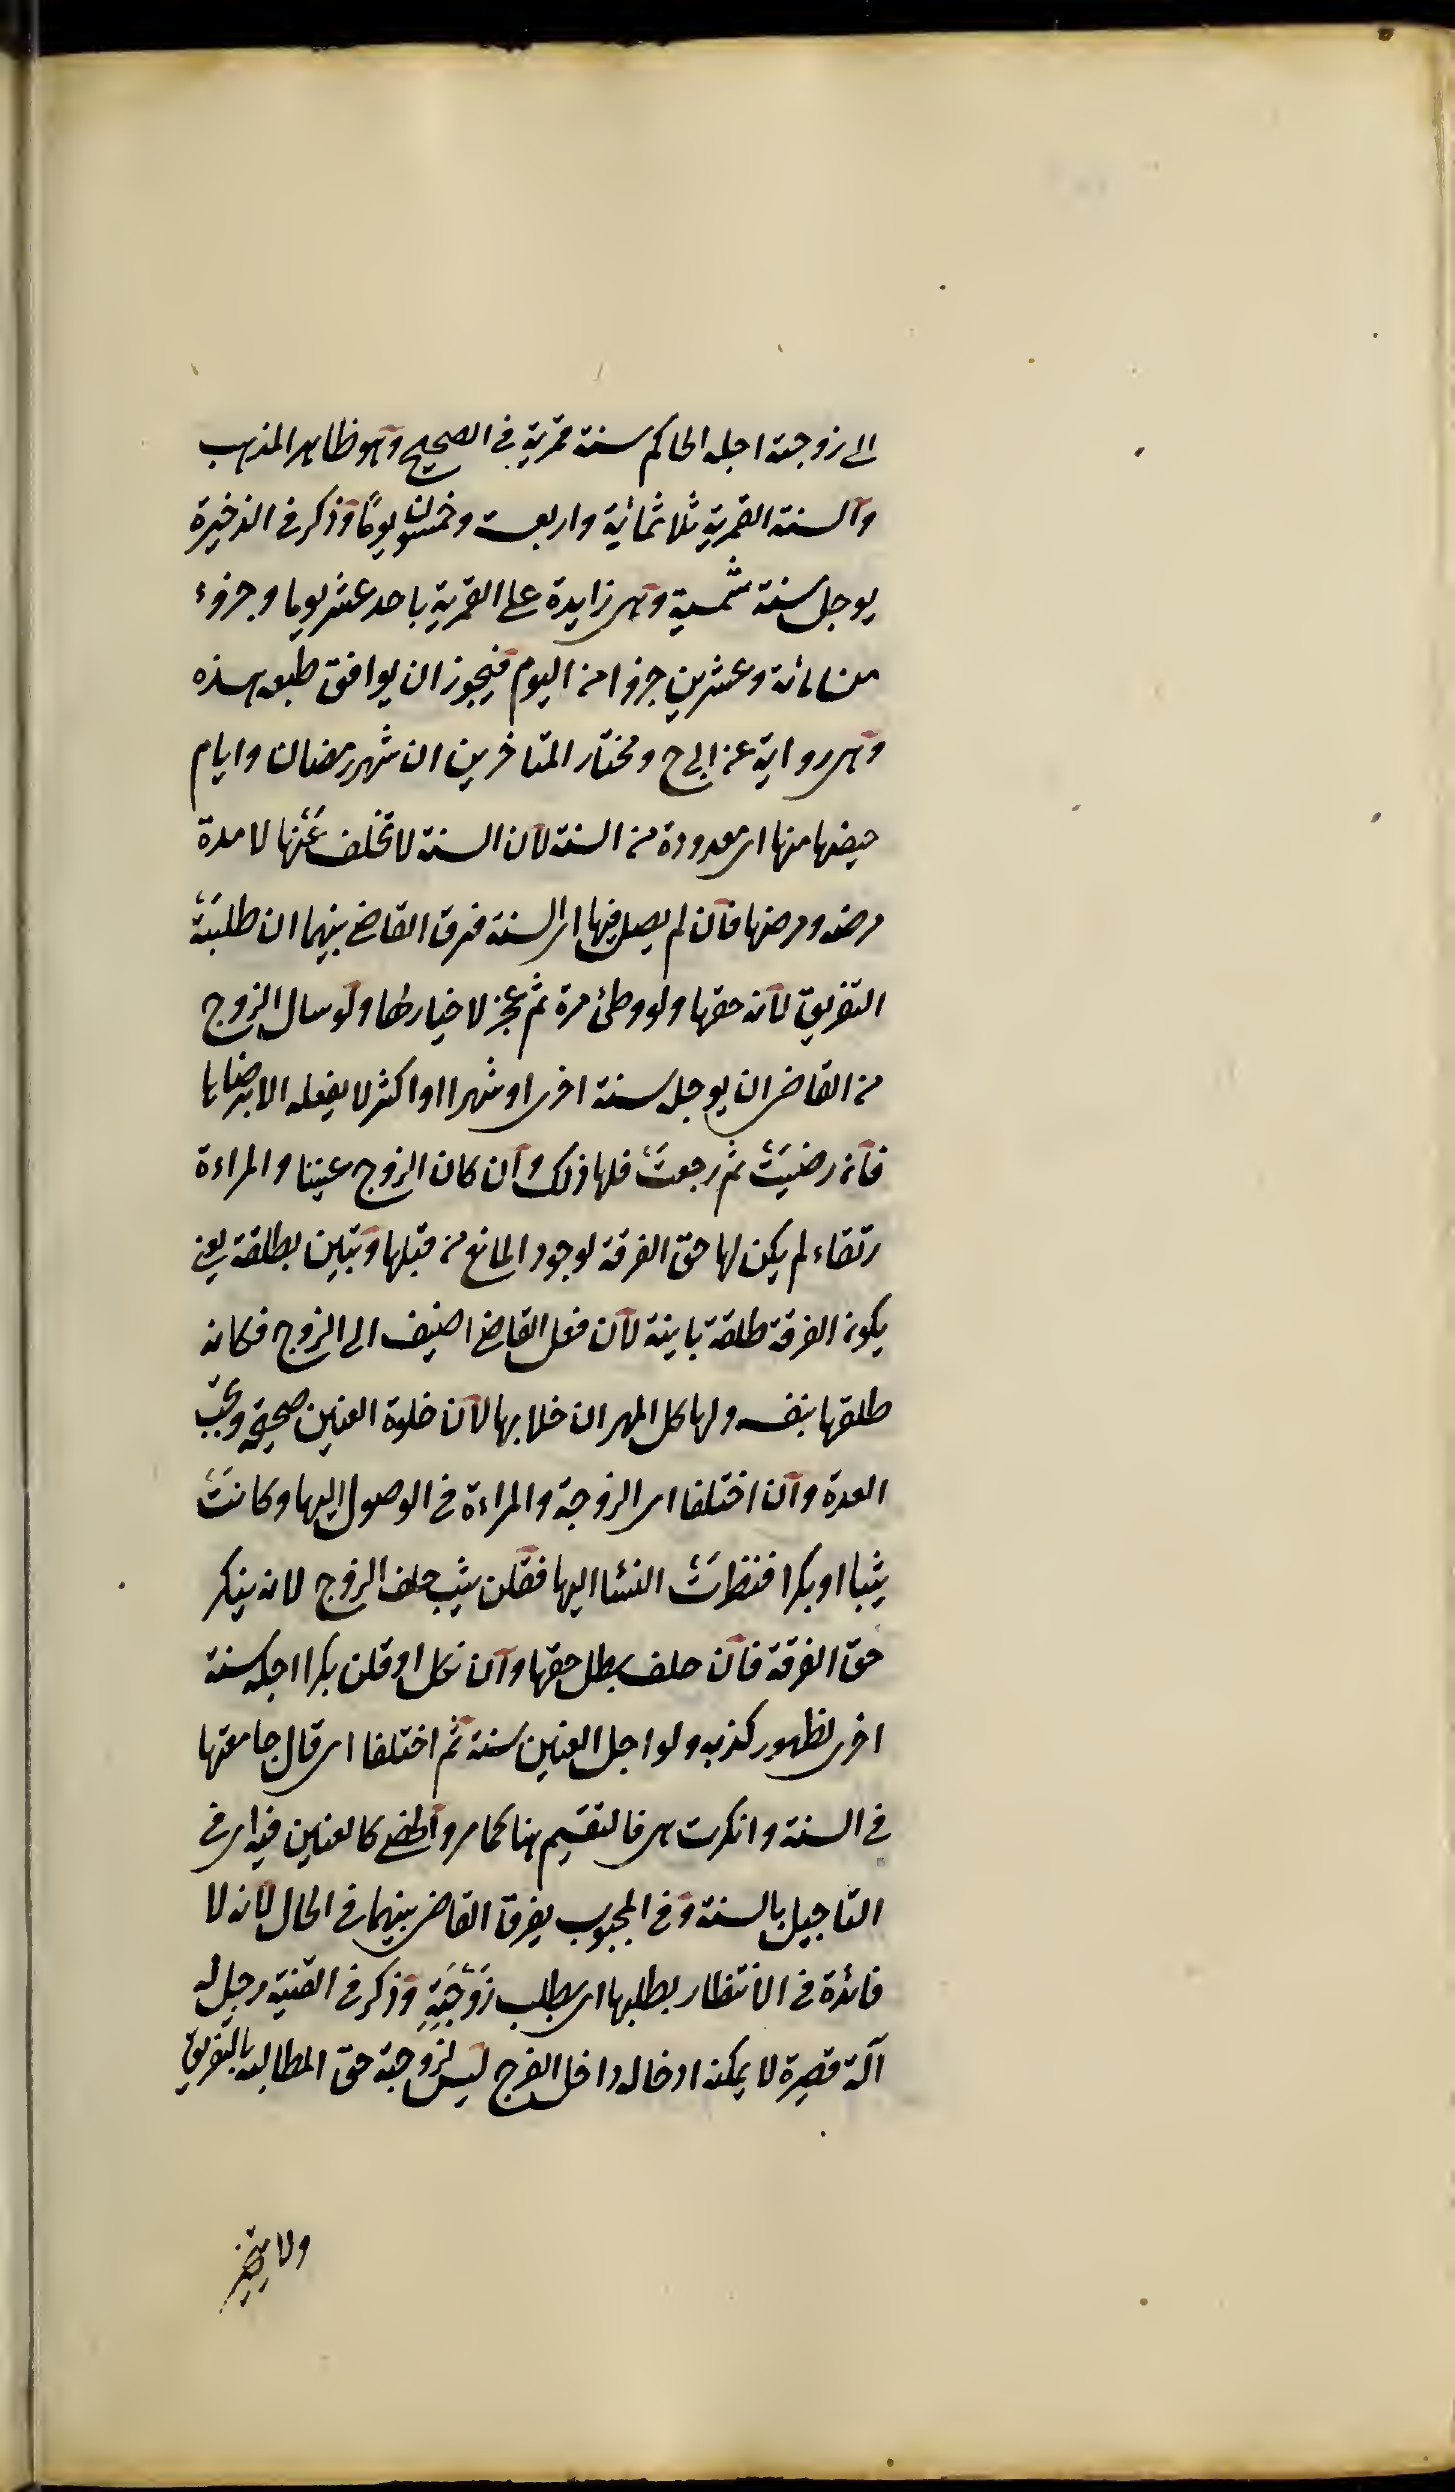 الى زوجته اجله الحاكم سنة قمرية فى الصحيح وهو ظاهر المذهب
والسنة القمرية ثلاثمائية واربعة وخمسون يومًا وذكر فى الذخيرة
يوجل سنة شمسية وهى زايدة على القمرية باحد عشر يوما وجزوء
من مائة وعشرين جزوا من اليوم فيجوز ان يوافق طبعه هذه
وهى رواية عن ابى ح ومختار المتاخرين ان شهر رمضان وايام
حيضها منها اى معدودة من السنة لان السنة لا تخلف عَنْها لا مدة
مرضه ومرضها فان لم يصل فيها اى السنة فرق القاضى بينهما ان طلبَتْه
التفريق لانه حقها ولو وطئ مرة ثم عجز لا خيار لها ولو سال الزوج
من القاضى ان يوجل سنة اخرى او شهرا او اكثر لا يفعله الا برضاها
فان رضيَتْ ثم رجعتَْ فلها ذلك وان كان الزوج عنينا والمراءة
رتقاء لم يكن لها حق الفرقة لوجود المانع من قبلها وتبين بطلقة يعنى
يكون الفرقة طلقة باينة لان فعل القاضى اضيف الى الزوج فكانه
طلقها بنفسه ولها كل المهر ان خلا بها لان خلوة العنين صحيحة وتجب
العدة وان اختلفا اى الزوجة والمراءة فى الوصول اليها وكانتَْ
ثيبا او بكرا فنظرتَْ النسا اليها فقلن ثيب حلف الزوج لانه ينكر
حق الفرقة فان حلف بطل حقها وان نكل او قلن بكرا اجله سنة
اخرى لظهور كذبه ولو اجل العنين سنة ثم اختلفا اى قال جامعتها
فى السنة وانكرت هى فالتقسيم هنا كما مر والخصى كالعنين فيه اى فى
التاجيل بالسنة وفى المجبوب يفرق القاضى بينهما فى الحال لانه لا
فائدة فى الانتظار بطلبها اى بطلب زَوْجَتِهِ وذكر فى القنية رجل له
آلة قصيرة لا يمكنه ادخاله داخل الفرج ليس لزوجته حق المطالبه بالتفريق